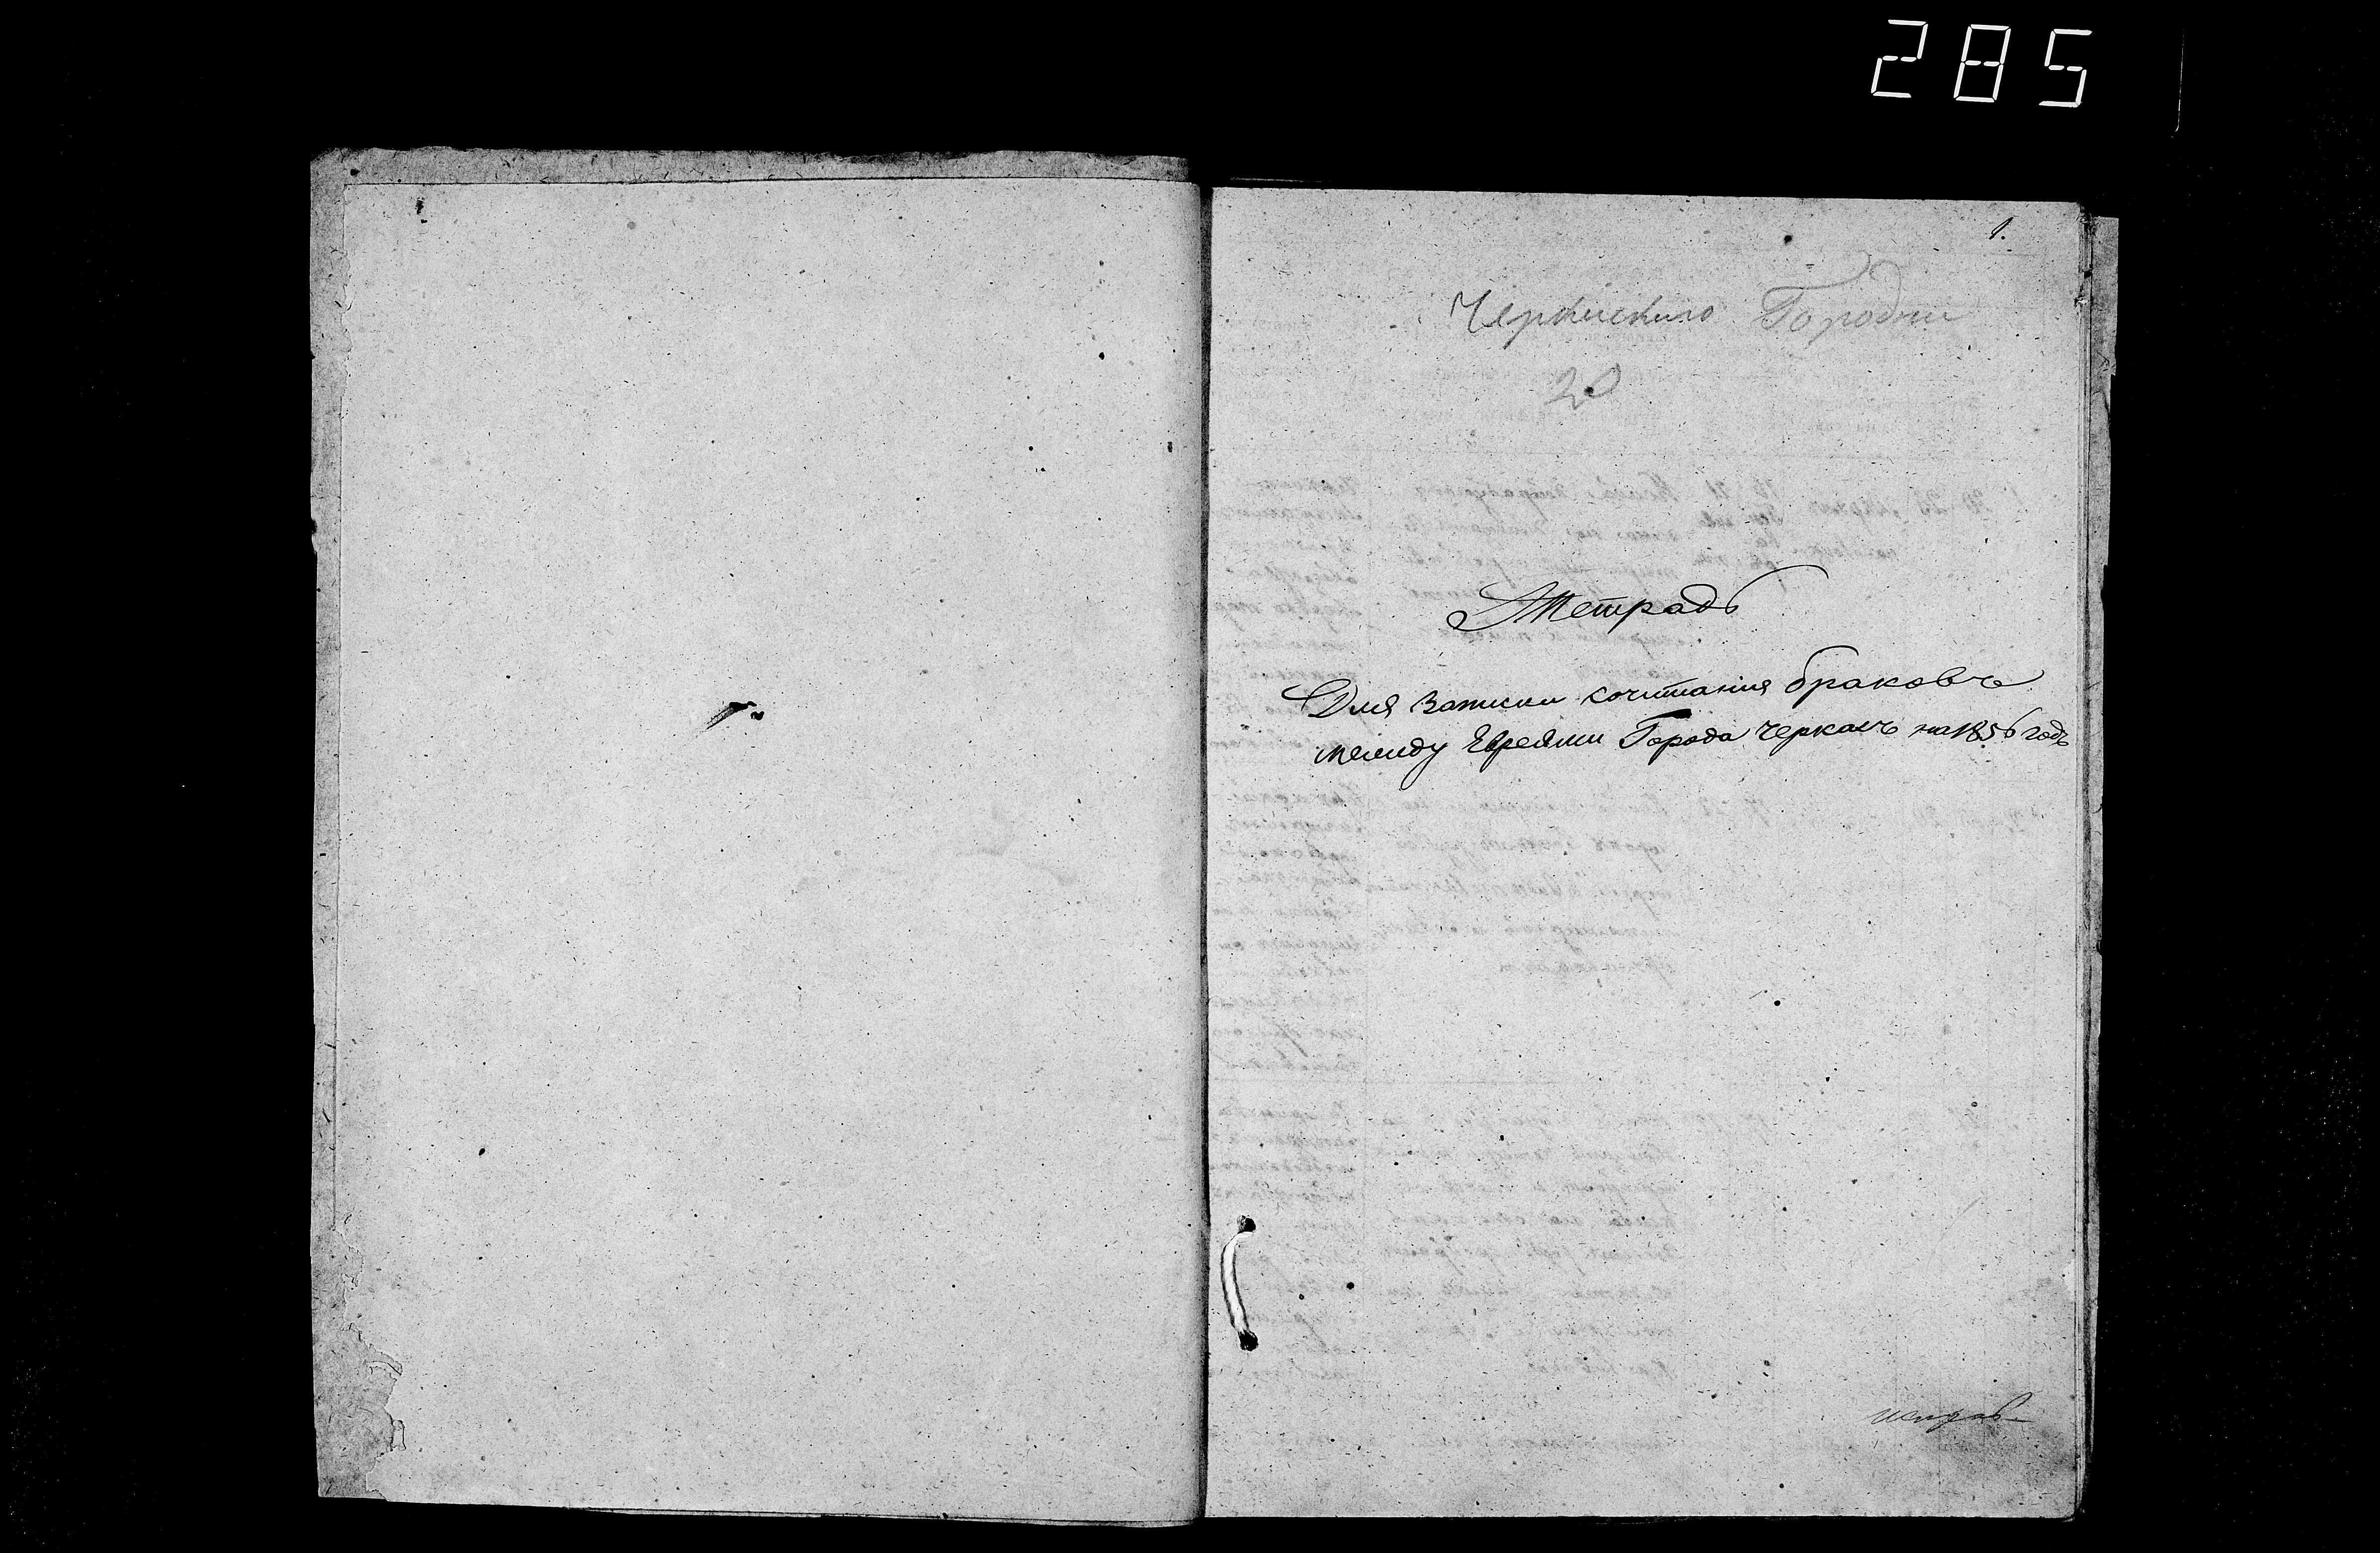 285
1.
Черкаскаго Городни
20
Тетрадь
Для Записки сочитания браковъ
между Евреями Города Черкасъ на 1856 годъ